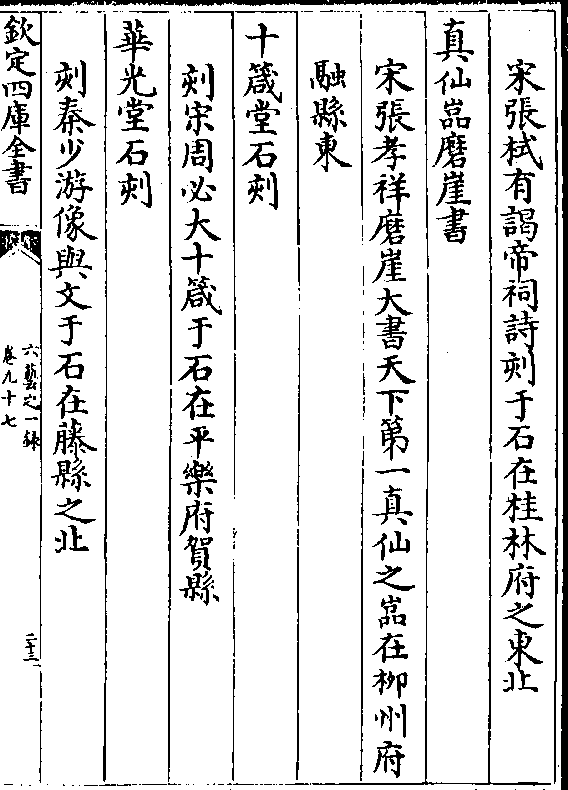 宋張栻有謁帝祠詩刻于石在桂林府之東北
真仙嵓磨崖書
宋張孝祥磨崖大書天下第一真仙之嵓在柳州府
融縣東
十箴堂石刻
刻宋周必大十箴于石在平樂府賀縣
華光堂石刻
刻秦少游像與文于石在藤縣之北
欽定四庫全書
六藝之一錄
卷九十七
二十三